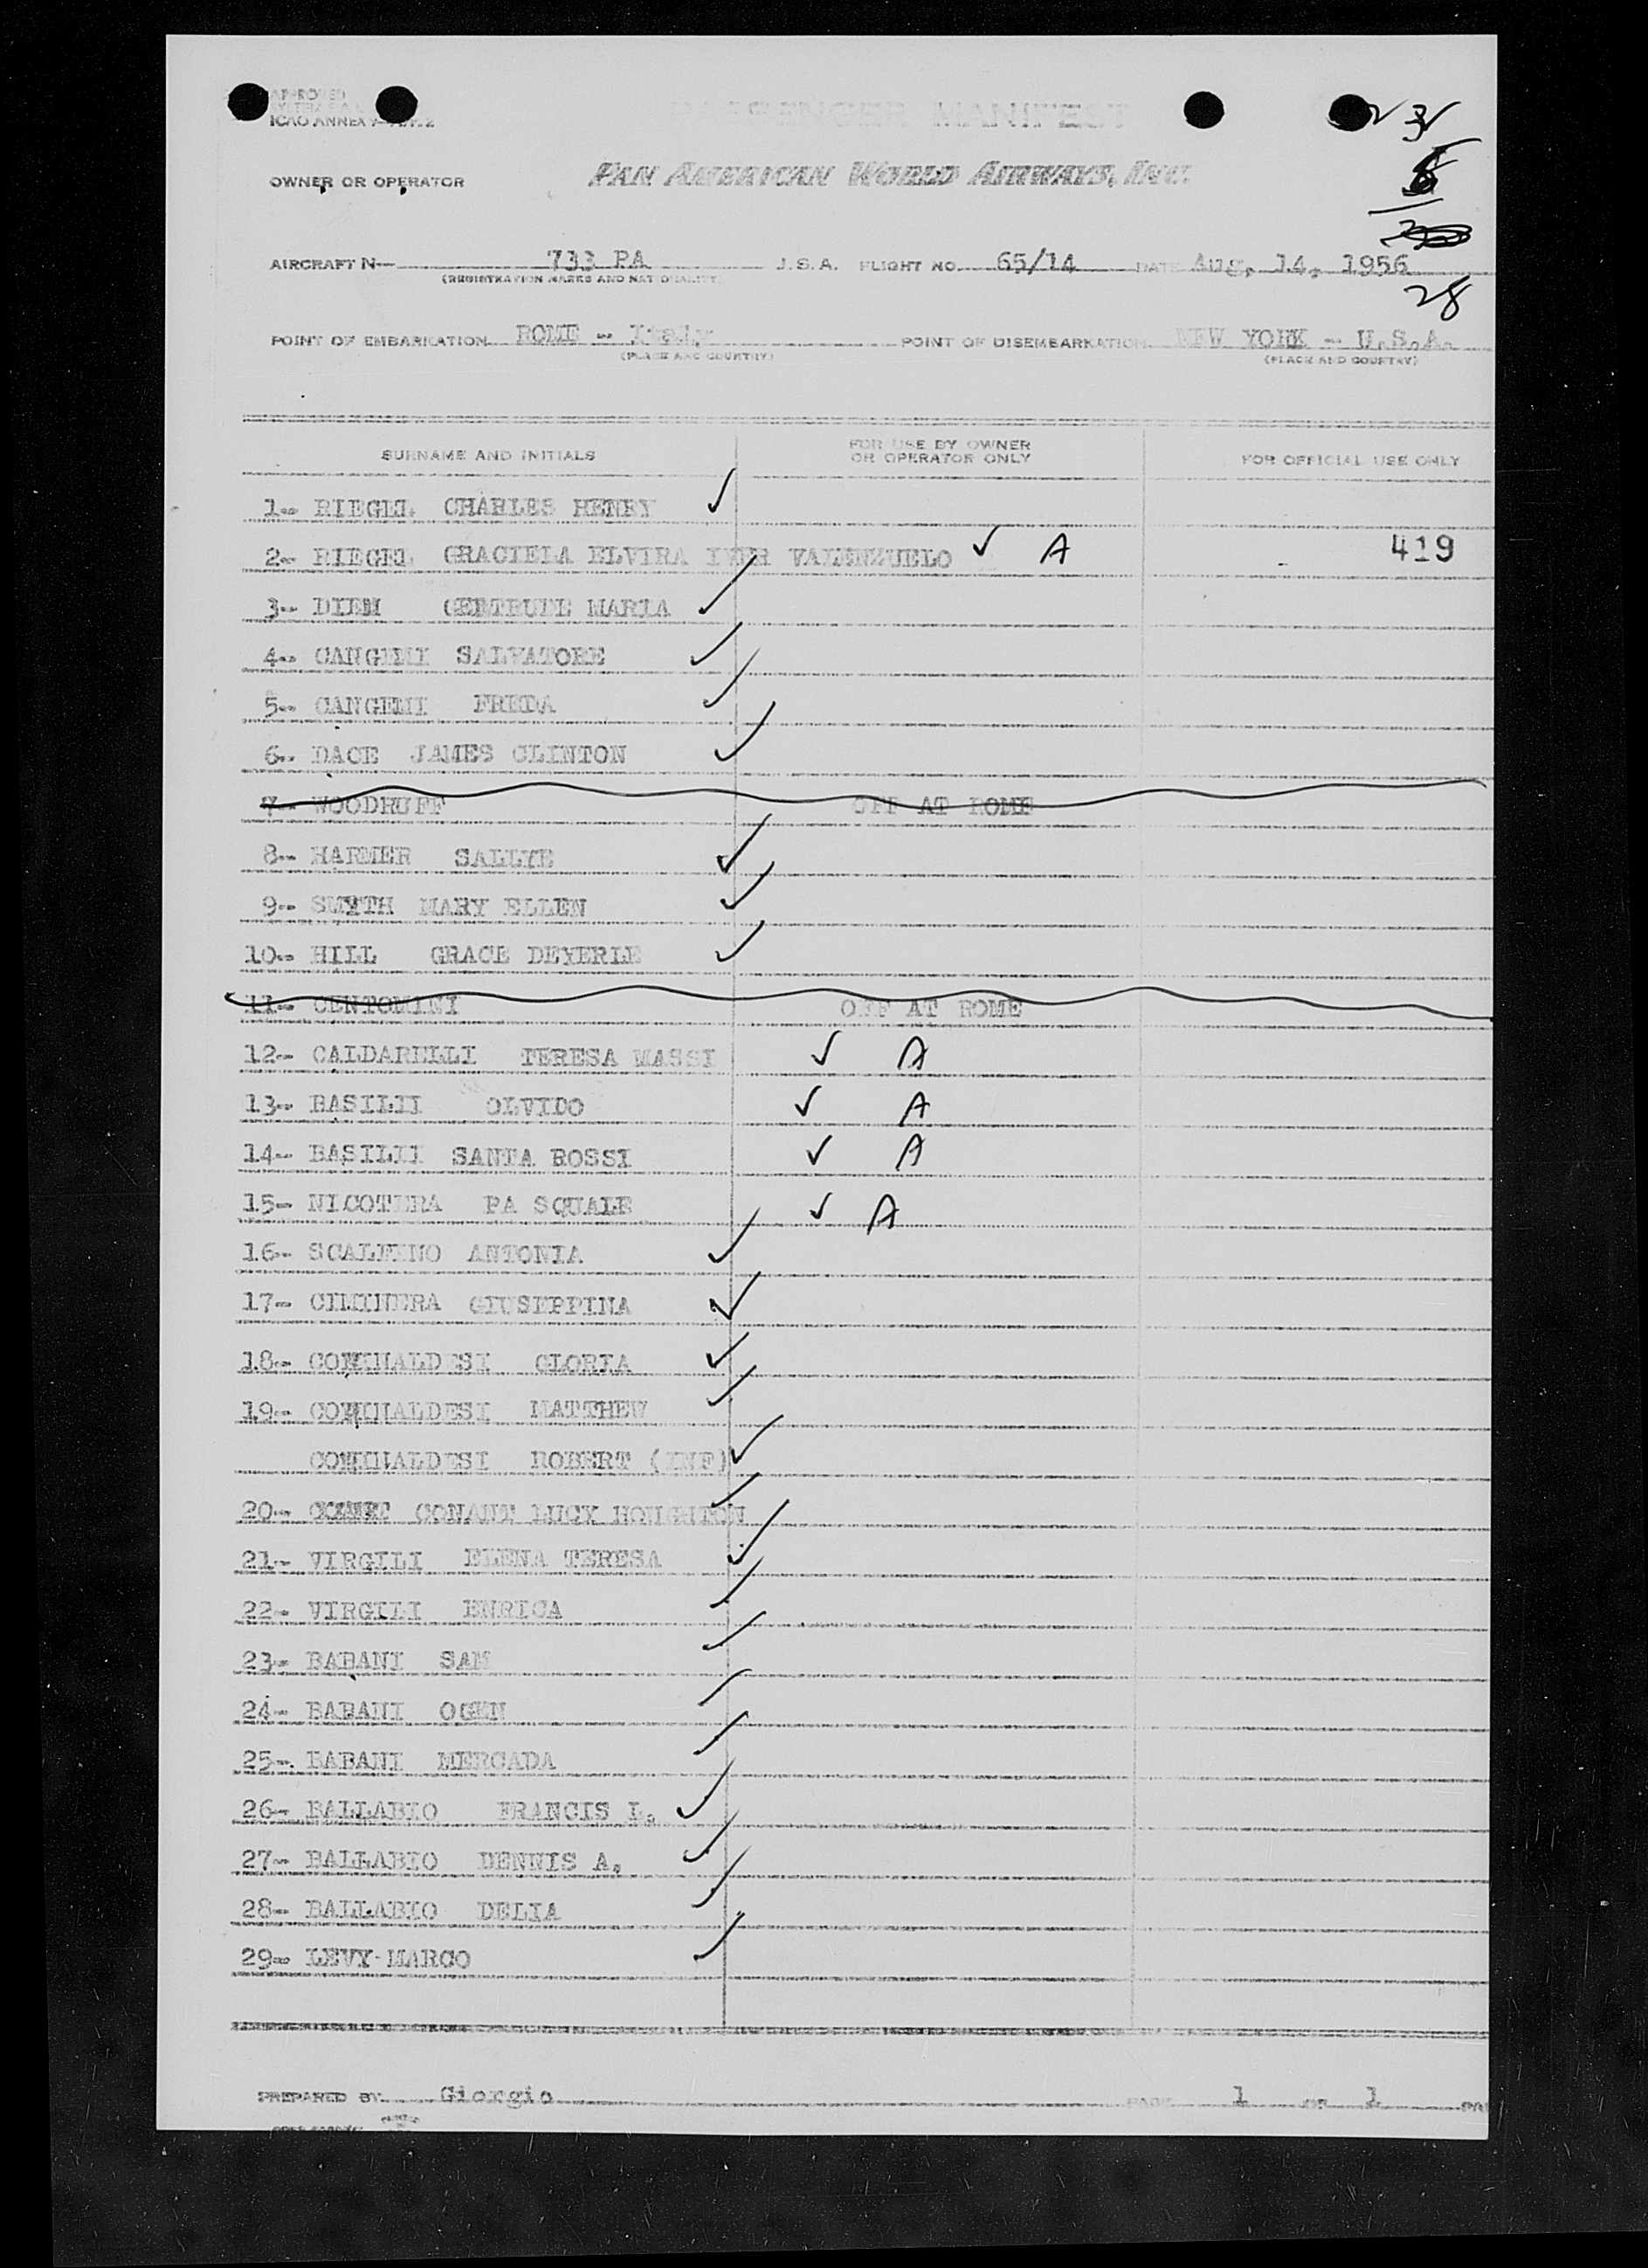 APPROVED
ICAO ANNEX 9
PASSENGER MANIFEST
3
OWNER OR OPERATOR PAN AMERICAN WORLD AIRWAYS, INC.
AIRCRAFT N- 733 PA U.S.A. FLIGHT NO. 65/14 DATE Aug, 14, 1956
(REGISTRATION MARKS AND NATIONALITY)
28
POINT OF EMBARKATION ROME - Italy POINT OF DISEMBARKATION NEW YORK - U.S.A.
(PLACE AND COUNTRY) (PLACE AND COUNTRY)
SURNAME AND INITIALS FOR USE BY OWNER OR OPERATOR ONLY FOR OFFICIAL USE ONLY
1- RIEGEL CHARLES HENRY ✓
2- RIEGEL GRACIELA ELVIRA VALENZUELO ✓ A 419
3- DIEM GERTRUDE MARIA ✓
4- CANGEMI SALVATORE ✓
5- CANGEMI FREDA ✓
6- DACE JAMES CLINTON ✓
7- WOODRUFF OFF AT ROME
8- HARMER SALLYE ✓
9- SMYTH MARY ELLEN ✓
10- HILL GRACE DEYERLE ✓
11- CENTOMINI OFF AT ROME
12- CALDARELLI TERESA MASSI ✓ A
13- BASILII OLVIDO ✓ A
14- BASILII SANTA ROSSI ✓ A
15- NICOTERA PA SQUALE ✓ A
16- SCALFINO ANTONIA ✓
17- CIMINERA GIUSEPPINA ✓
18- COMINALDESI GLORIA ✓
19- COMINALDESI MATTHEW ✓
COMINALDESI ROBERT (INF) ✓
20- CONANT LUCY HOUGHTON ✓
21- VIRGILI ELENA TERESA ✓
22- VIRGILI ENRICA ✓
23- BABANI SAM ✓
24- BABANI OGEN ✓
25- BABANI MERCADA ✓
26- BALLABIO FRANCIS L. ✓
27- BALLABIO DENNIS A. ✓
28- BALLABIO DELIA ✓
29- LEVY MARCO ✓
PREPARED BY Giorgio PAGE 1 OF 1